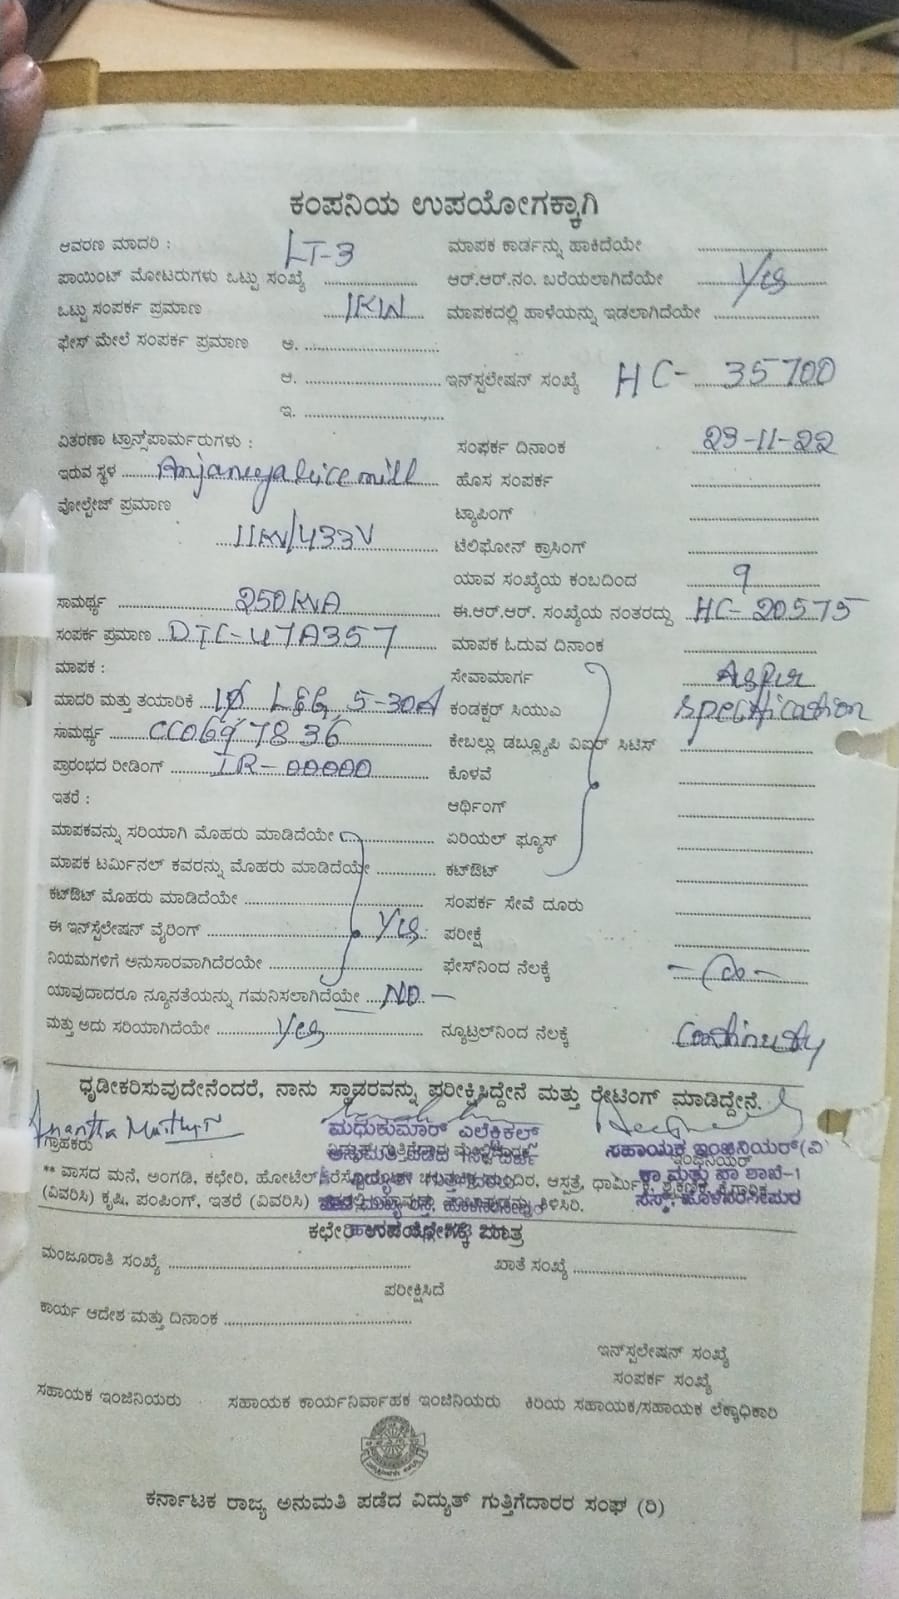 ಕಂಪನಿಯ ಉಪಯೋಗಕ್ಕಾಗಿ
ಆವರಣ ಮಾದರಿ : LT-3
ಮಾಪಕ ಕಾರ್ಡನ್ನು ಹಾಕಿದೆಯೇ
ಪಾಯಿಂಟ್ ಮೋಟರುಗಳು ಒಟ್ಟು ಸಂಖ್ಯೆ
ಆರ್.ಆರ್.ನಂ. ಬರೆಯಲಾಗಿದೆಯೇ Yes
ಒಟ್ಟು ಸಂಪರ್ಕ ಪ್ರಮಾಣ 1KW
ಮಾಪಕದಲ್ಲಿ ಹಾಳೆಯನ್ನು ಇಡಲಾಗಿದೆಯೇ
ಫೇಸ್ ಮೇಲೆ ಸಂಪರ್ಕ ಪ್ರಮಾಣ ಅ.
ಆ.
ಇನ್‌ಸ್ಟಲೇಷನ್ ಸಂಖ್ಯೆ HC- 35700
ಇ.
ವಿತರಣಾ ಟ್ರಾನ್ಸ್‌ಪಾರ್ಮರುಗಳು :
ಸಂಪರ್ಕ ದಿನಾಂಕ 23-11-22
ಇರುವ ಸ್ಥಳ
ಹೊಸ ಸಂಪರ್ಕ
ವೋಲ್ಟೇಜ್ ಪ್ರಮಾಣ
ಟ್ಯಾಪಿಂಗ್
11KV/433V
ಟೆಲಿಫೋನ್ ಕ್ರಾಸಿಂಗ್
ಯಾವ ಸಂಖ್ಯೆಯ ಕಂಬದಿಂದ 9
ಸಾಮರ್ಥ್ಯ 250KVA
ಈ.ಆರ್.ಆರ್. ಸಂಖ್ಯೆಯ ನಂತರದ್ದು HC-20575
ಸಂಪರ್ಕ ಪ್ರಮಾಣ DTC-47A357
ಮಾಪಕ ಓದುವ ದಿನಾಂಕ
ಮಾಪಕ :
ಸೇವಾಮಾರ್ಗ Asper
ಮಾದರಿ ಮತ್ತು ತಯಾರಿಕೆ 1Ø L&G, 5-30A
ಕಂಡಕ್ಟರ್ ಸಿಯುಎ Specification
ಸಾಮರ್ಥ್ಯ CC0697836
ಕೇಬಲ್ಲು ಡಬ್ಲ್ಯೂಪಿ ವಿಷರ್ ಸಿಟಿಸ್
ಪ್ರಾರಂಭದ ರೀಡಿಂಗ್ IR-00000
ಕೊಳವೆ
ಇತರೆ :
ಆರ್ಥಿಂಗ್
ಮಾಪಕವನ್ನು ಸರಿಯಾಗಿ ಮೊಹರು ಮಾಡಿದೆಯೇ
ಏರಿಯಲ್ ಫ್ಯೂಸ್
ಮಾಪಕ ಟರ್ಮಿನಲ್ ಕವರನ್ನು ಮೊಹರು ಮಾಡಿದೆಯೇ
ಕಟ್‌ಔಟ್
ಕಟ್‌ಔಟ್ ಮೊಹರು ಮಾಡಿದೆಯೇ
ಸಂಪರ್ಕ ಸೇವೆ ದೂರು
ಈ ಇನ್‌ಸ್ಟೆಲೇಷನ್ ವೈರಿಂಗ್ Yes
ಪರೀಕ್ಷೆ
ನಿಯಮಗಳಿಗೆ ಅನುಸಾರವಾಗಿದೆರಯೇ
ಫೇಸ್‌ನಿಂದ ನೆಲಕ್ಕೆ
ಯಾವುದಾದರೂ ನ್ಯೂನತೆಯನ್ನು ಗಮನಿಸಲಾಗಿದೆಯೇ NO
ಮತ್ತು ಅದು ಸರಿಯಾಗಿದೆಯೇ Yes
ನ್ಯೂಟ್ರಲ್‌ನಿಂದ ನೆಲಕ್ಕೆ Continuty
ಧೃಡೀಕರಿಸುವುದೇನೆಂದರೆ, ನಾನು ಸ್ಥಾವರವನ್ನು ಪರೀಕ್ಷಿಸಿದ್ದೇನೆ ಮತ್ತು ರೇಟಿಂಗ್ ಮಾಡಿದ್ದೇನೆ.
Anantha Murthy
ಮಧುಕುಮಾರ್ ಎಲೆಕ್ಟ್ರಿಕಲ್
ಸಹಾಯಕ ಇಂಜಿನಿಯರ್(ವಿ)
ಗ್ರಾಹಕರು
** ವಾಸದ ಮನೆ, ಅಂಗಡಿ, ಕಛೇರಿ, ಹೋಟೆಲ್ ಆಸ್ಪತ್ರೆ, ಧಾರ್ಮಿಕ
(ವಿವರಿಸಿ) ಕೃಷಿ, ಪಂಪಿಂಗ್, ಇತರೆ (ವಿವರಿಸಿ) ತಿಳಿಸಿರಿ.
ಕಛೇರಿ ಉಪಯೋಗಕ್ಕೆ ಮಾತ್ರ
ಮಂಜೂರಾತಿ ಸಂಖ್ಯೆ
ಖಾತೆ ಸಂಖ್ಯೆ
ಪರೀಕ್ಷಿಸಿದೆ
ಕಾರ್ಯ ಆದೇಶ ಮತ್ತು ದಿನಾಂಕ
ಇನ್‌ಸ್ಟಲೇಷನ್ ಸಂಖ್ಯೆ
ಸಂಪರ್ಕ ಸಂಖ್ಯೆ
ಸಹಾಯಕ ಇಂಜಿನಿಯರು ಸಹಾಯಕ ಕಾರ್ಯನಿರ್ವಾಹಕ ಇಂಜಿನಿಯರು ಕಿರಿಯ ಸಹಾಯಕ/ಸಹಾಯಕ ಲೆಕ್ಕಾಧಿಕಾರಿ
ಕರ್ನಾಟಕ ರಾಜ್ಯ ಅನುಮತಿ ಪಡೆದ ವಿದ್ಯುತ್ ಗುತ್ತಿಗೆದಾರರ ಸಂಘ (ರಿ)